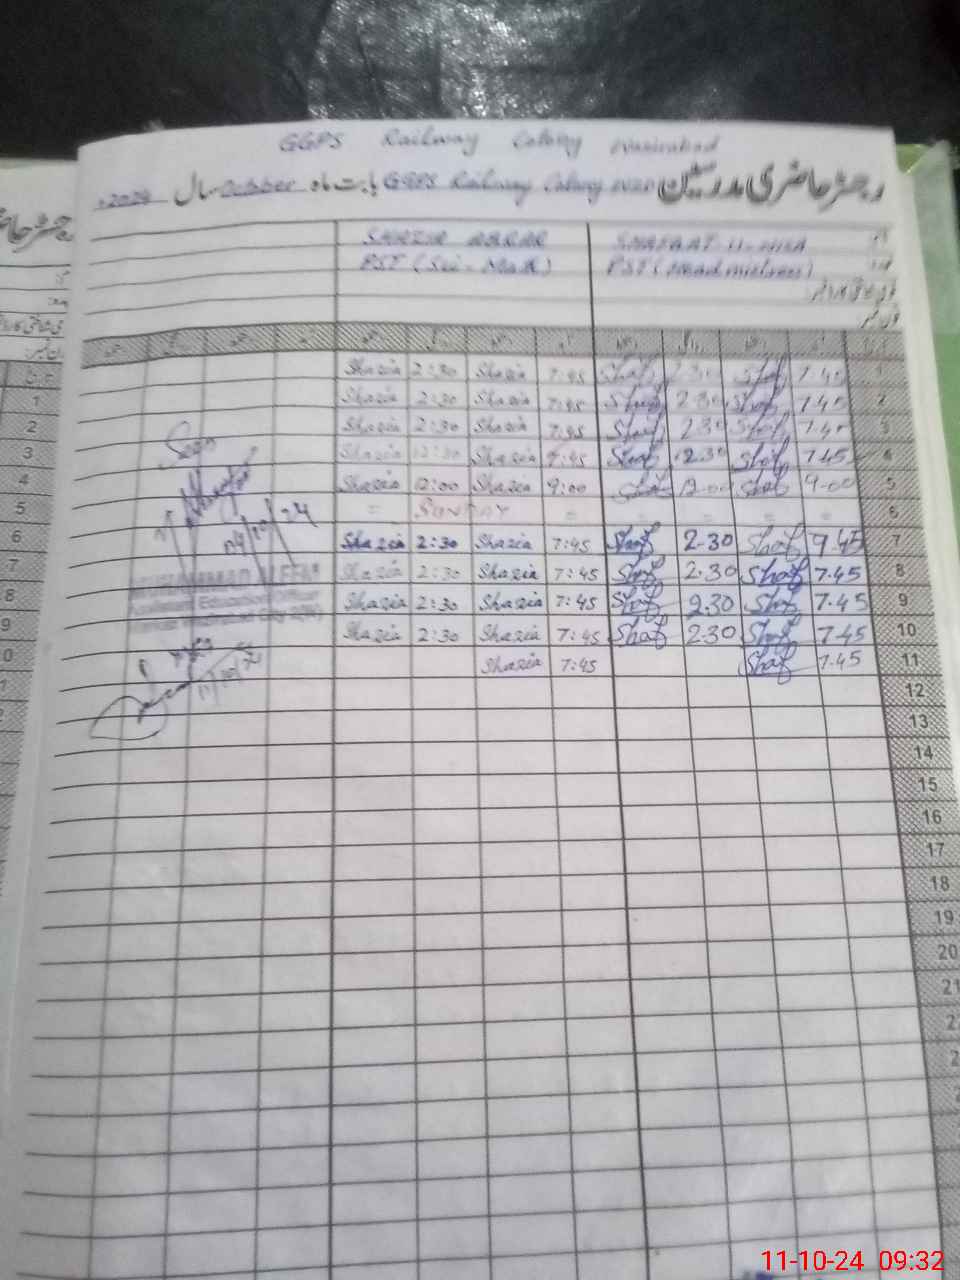 GGPS Railway Colony Wazirabad
رجسٹر حاضری مدرسین GGPS Railway Colony بابت ماہ October سال 2024ء
SHAZIA ABRAR SHAFAAT-U-NISA نام
PST (Sci-Math) PST (Head mistress) عہدہ
قومی شناختی کارڈ نمبر:
فون نمبر:
Shazia 2:30 Shazia 7:45 Shaf 2:30 Shaf 7.45 1
Shazia 2:30 Shazia 7:45 Shaf 2:30 Shaf 7.45 2
Shazia 2:30 Shazia 7:45 Shaf 2:30 Shaf 7.45 3
Shazia 12:30 Shazia 7:45 Shaf 12.30 Shaf 7.45 4
Shazia 12:00 Shazia 9:00 Shaf 12.00 Shaf 9.00 5
= SUNDAY = = = = = 6
Shazia 2:30 Shazia 7:45 Shaf 2.30 Shaf 9.45 7
Shazia 2:30 Shazia 7:45 Shaf 2.30 Shaf 7.45 8
Shazia 2:30 Shazia 7:45 Shaf 2.30 Shaf 7.45 9
Shazia 2:30 Shazia 7:45 Shaf 2.30 Shaf 7.45 10
Shazia 7:45 Shaf 7.45 11
12
13
14
15
16
17
18
19
20
21
Seen
04/10/24
MUHAMMAD ALEEM
Assistant Education Officer
11/10/24
1
2
3
4
5
6
7
8
9
11-10-24 09:32